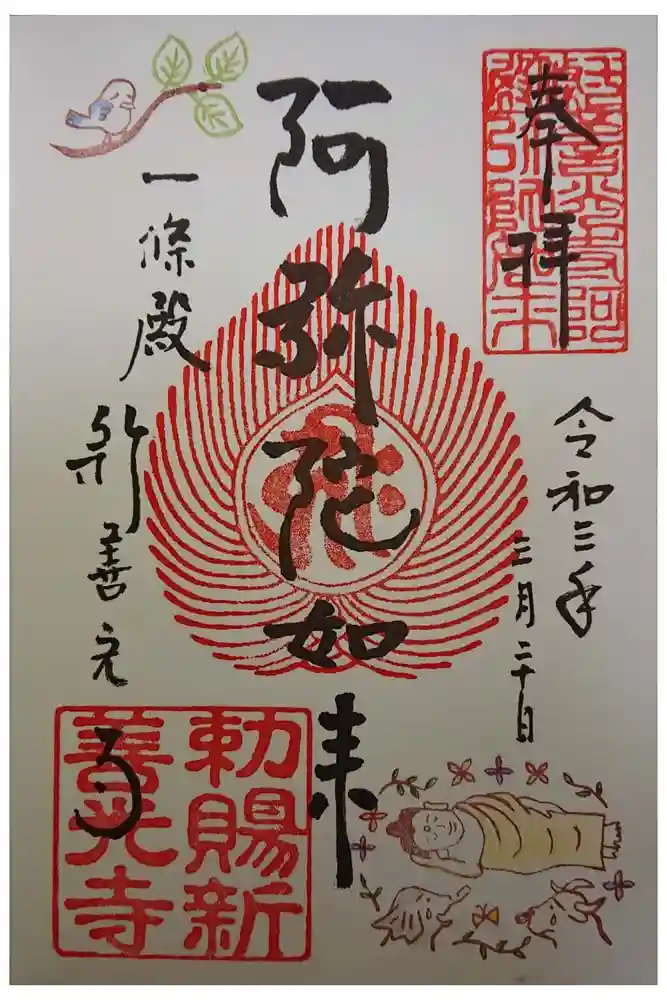 奉拝
令和三年
三月二十日
阿弥陀如来
一條殿
新善光寺
勅賜新
善光寺